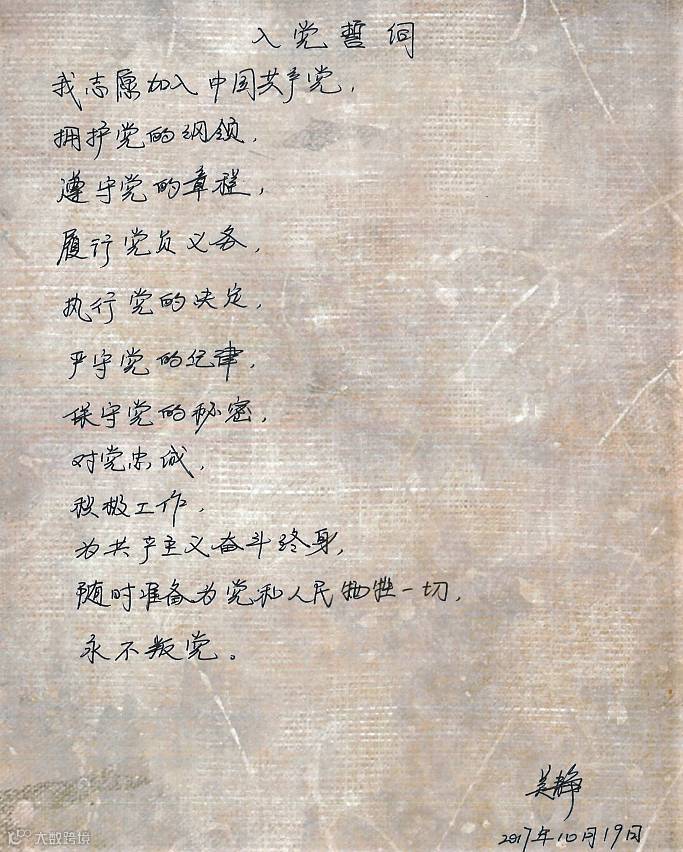 入党誓词
我志愿加入中国共产党，
拥护党的纲领，
遵守党的章程，
履行党员义务，
执行党的决定，
严守党的纪律，
保守党的秘密，
对党忠诚，
积极工作，
为共产主义奋斗终身，
随时准备为党和人民牺牲一切，
永不叛党。
吴静
2017年10月19日
大数跨境